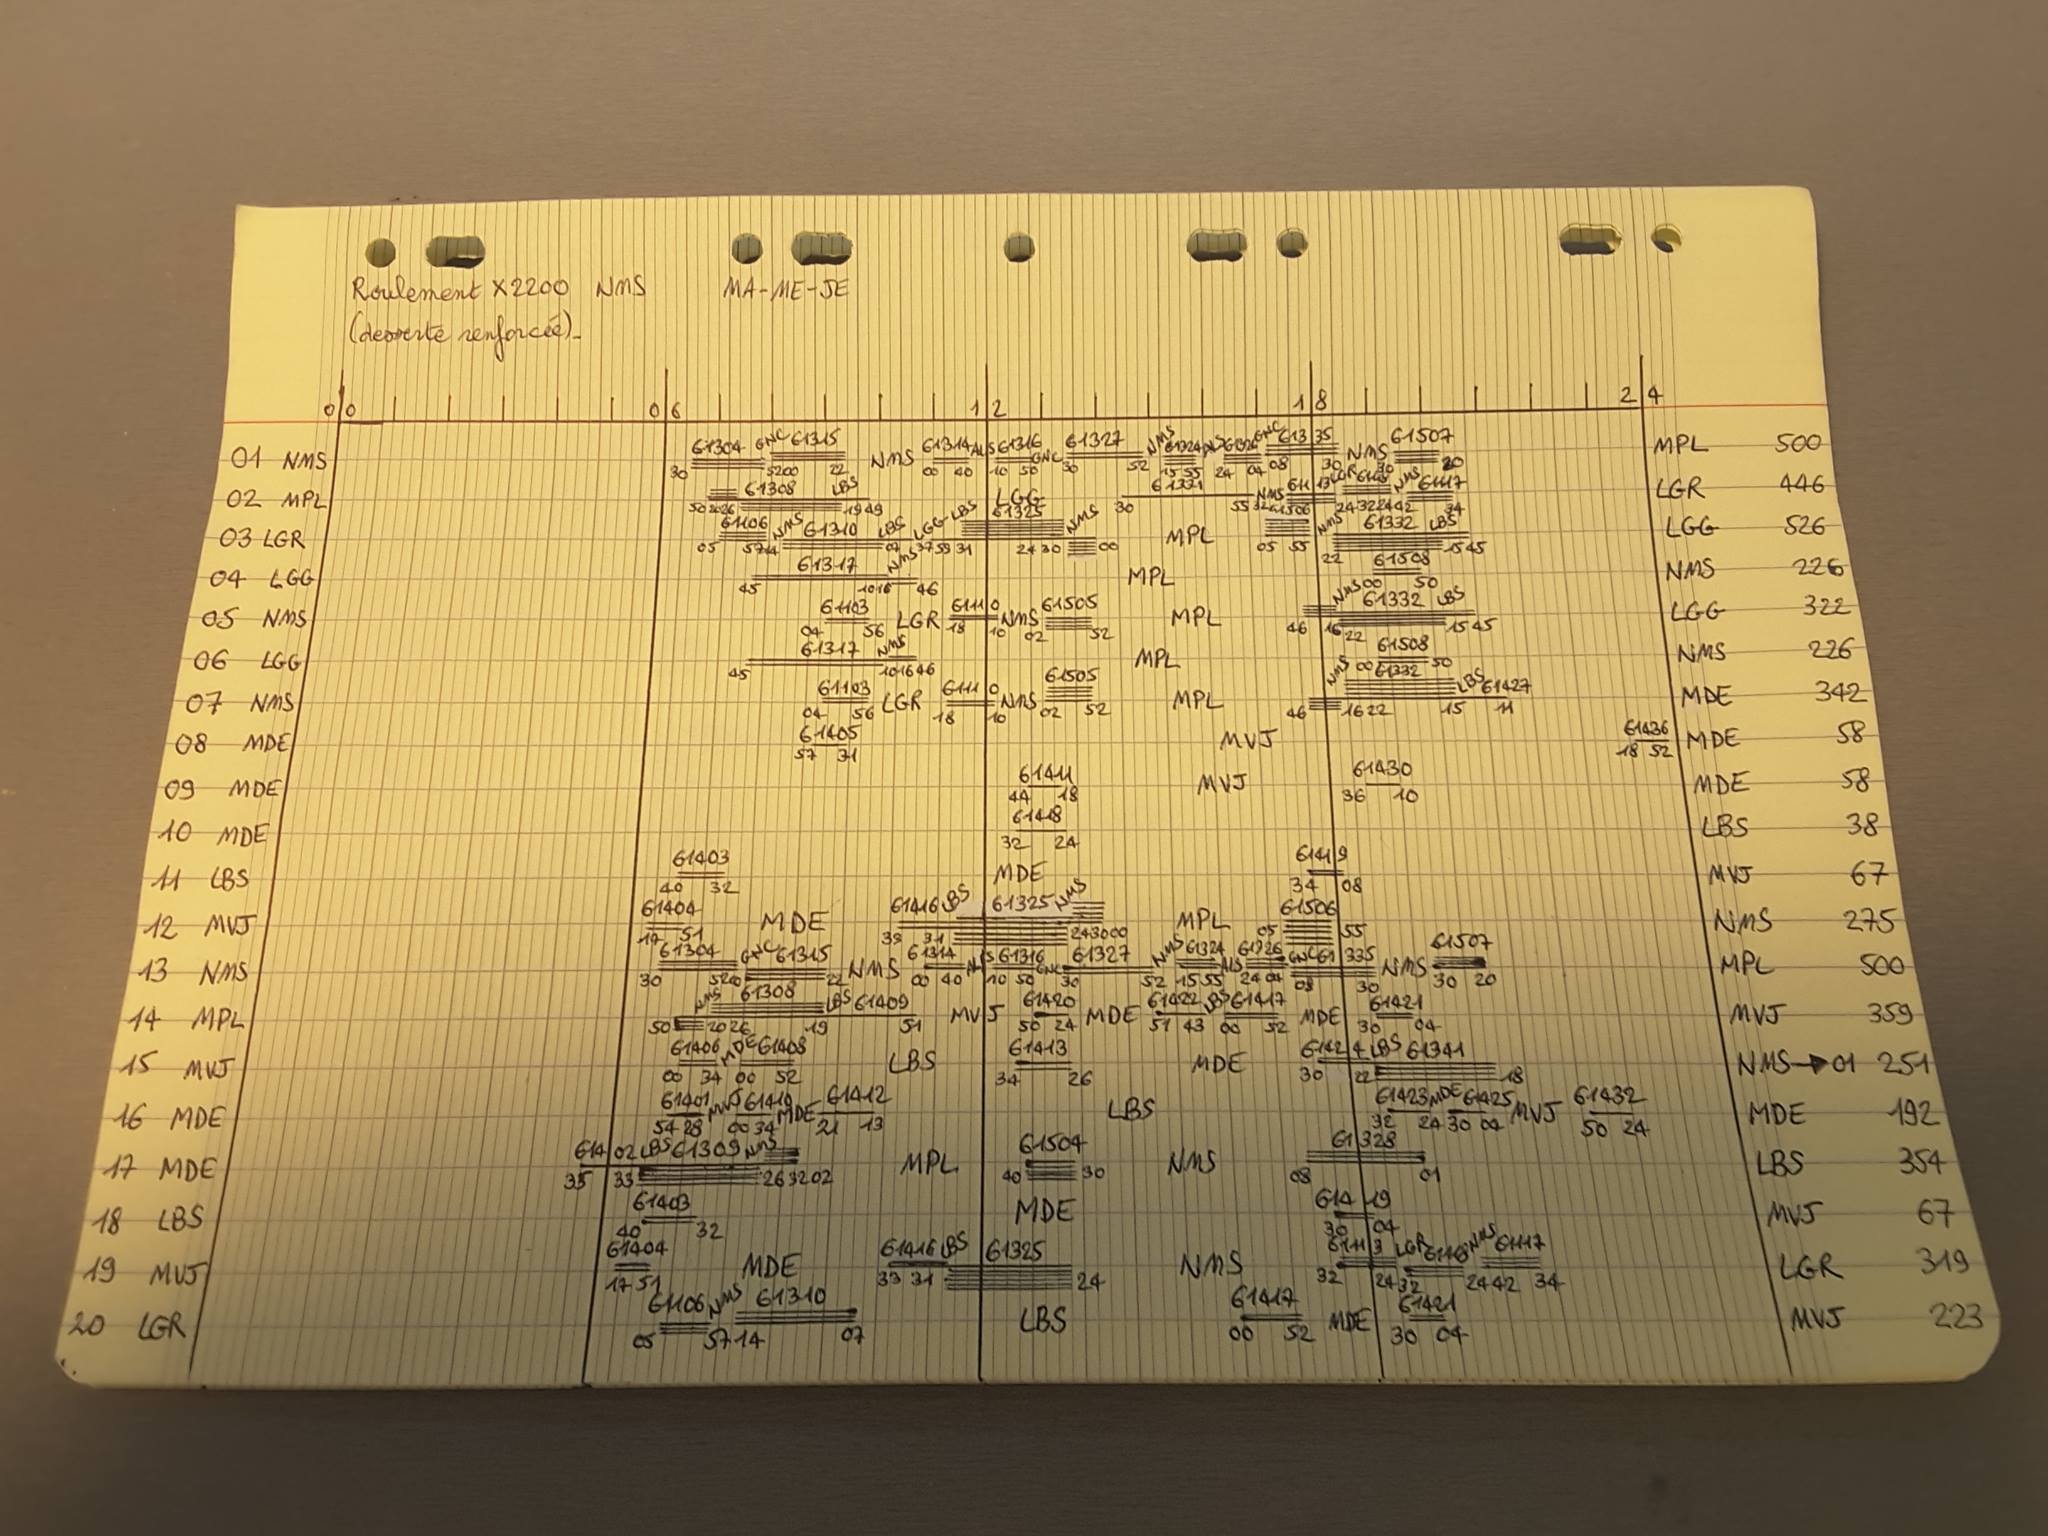 Roulement X2200 NMS MA-ME-JE
(desserte renforcée)
00 06 12 18 24
01 NMS 61304 GNC 61315 NMS 61314 ALS 61316 GNC 61327 NMS 61324 ALS 61326 GNC 61335 NMS 61507 MPL 500
30 5200 22 00 40 10 50 30 52 15 55 24 04 08 30 30 20
02 MPL 61308 LBS LGG 61331 NMS 61113 LGR NMS 61117 LGR 446
50 2026 1949 30 55 32 24 32 24 42 34
03 LGR 61106 NMS 61310 LBS LGG LBS 61325 NMS MPL 61506 NMS 61332 LBS LGG 526
05 57 14 07 37 59 31 24 30 00 05 55 22 15 45
04 LGG 61317 NMS MPL 61508 NMS 226
45 1016 46 00 50
05 NMS 61103 LGR 61110 NMS 61505 MPL NMS 61332 LBS LGG 322
04 56 18 10 02 52 46 16 22 15 45
06 LGG 61317 NMS MPL 61508 NMS 226
45 101646 00 50
07 NMS 61103 LGR 61110 NMS 61505 MPL NMS 61332 LBS 61427 MDE 342
04 56 18 10 02 52 46 16 22 15 11
08 MDE 61405 MVJ 61436 MDE 58
57 31 18 52
09 MDE 61411 MVJ 61430 MDE 58
44 18 36 10
10 MDE 61418 LBS 38
32 24
11 LBS 61403 MDE 61419 MVJ 67
40 32 34 08
12 MVJ 61404 MDE 61416 LBS 61325 NMS MPL 61506 NMS 275
17 51 39 31 243000 05 55
13 NMS 61304 GNC 61315 NMS 61314 ALS 61316 GNC 61327 NMS 61324 ALS 61326 GNC 61335 NMS 61507 MPL 500
30 5200 22 00 40 10 50 30 52 15 55 24 04 08 30 30 20
14 MPL NMS 61308 LBS 61409 MVJ 61420 MDE 61422 LBS 61417 MDE 61421 MVJ 359
50 20 26 19 51 50 24 51 43 00 52 30 04
15 MVJ 61406 MDE 61408 LBS 61413 MDE 61424 LBS 61341 NMS→01 251
00 34 00 52 34 26 30 22 18
16 MDE 61401 MVJ 61410 MDE 61412 LBS 61423 MDE 61425 MVJ 61432 MDE 192
54 28 00 34 21 13 32 24 30 04 50 24
17 MDE 61402 LBS 61309 NMS MPL 61504 NMS 61328 LBS 354
35 33 26 32 02 40 30 08 01
18 LBS 61403 MDE 61419 MVJ 67
40 32 30 04
19 MVJ 61404 MDE 61416 LBS 61325 NMS 61113 LGR NMS 61117 LGR 319
17 51 39 31 24 32 24 32 24 42 34
20 LGR 61106 NMS 61310 LBS 61417 MDE 61421 MVJ 223
05 57 14 07 00 52 30 04